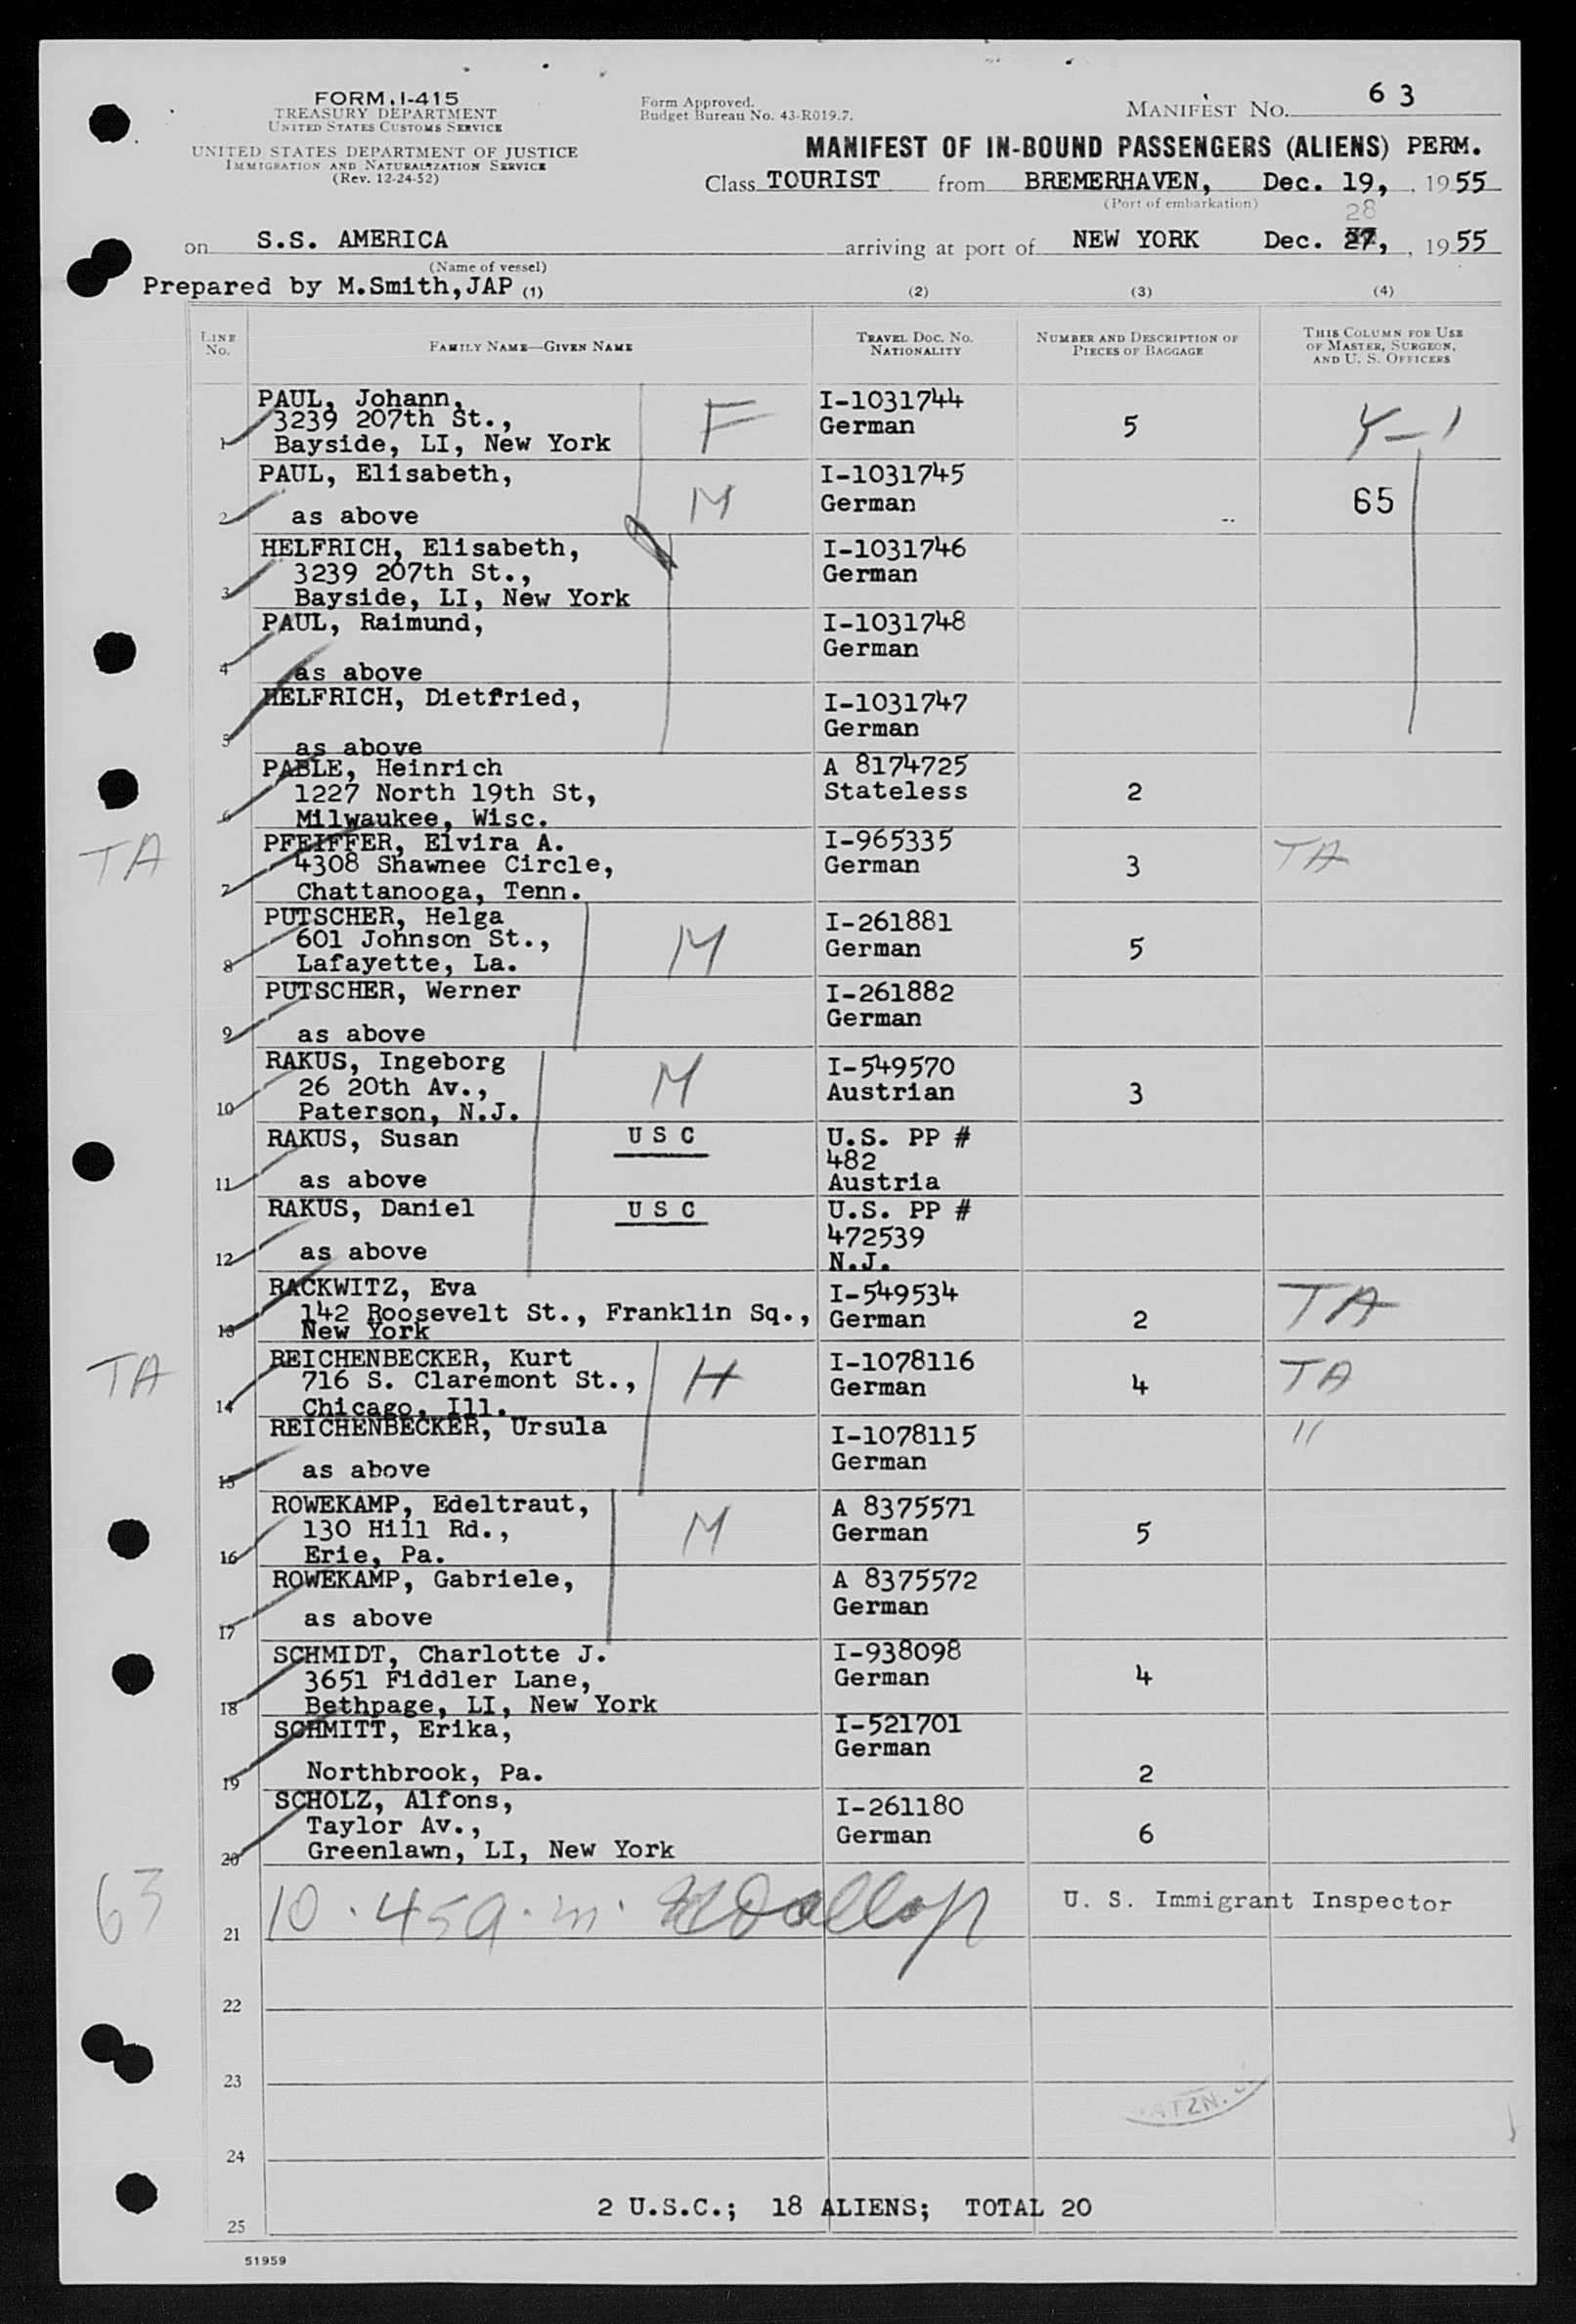 FORM I-415
TREASURY DEPARTMENT
UNITED STATES CUSTOMS SERVICE
UNITED STATES DEPARTMENT OF JUSTICE
IMMIGRATION AND NATURALIZATION SERVICE
(Rev. 12-24-52)
Form Approved.
Budget Bureau No. 43-R019.7.
MANIFEST NO. 63
MANIFEST OF IN-BOUND PASSENGERS (ALIENS) PERM.
Class TOURIST from BREMERHAVEN, Dec. 19, , 1955
(Port of embarkation)
28
on S.S. AMERICA arriving at port of NEW YORK Dec. 27, , 1955
(Name of vessel)
Prepared by M.Smith,JAP (1) (2) (3) (4)
LINE NO.
FAMILY NAME—GIVEN NAME
TRAVEL DOC. NO. NATIONALITY
NUMBER AND DESCRIPTION OF PIECES OF BAGGAGE
THIS COLUMN FOR USE OF MASTER, SURGEON, AND U. S. OFFICERS
PAUL, Johann, I-1031744
3239 207th St., F German 5 Y-1
1 Bayside, LI, New York
PAUL, Elisabeth, I-1031745
M German 65
2 as above
HELFRICH, Elisabeth, I-1031746
3239 207th St., German
3 Bayside, LI, New York
PAUL, Raimund, I-1031748
German
4 as above
HELFRICH, Dietfried, I-1031747
German
5 as above
PABLE, Heinrich A 8174725
1227 North 19th St, Stateless 2
6 Milwaukee, Wisc.
PFEIFFER, Elvira A. I-965335
TA 4308 Shawnee Circle, German 3 TA
7 Chattanooga, Tenn.
PUTSCHER, Helga I-261881
601 Johnson St., M German 5
8 Lafayette, La.
PUTSCHER, Werner I-261882
German
9 as above
RAKUS, Ingeborg I-549570
26 20th Av., M Austrian 3
10 Paterson, N.J.
RAKUS, Susan U S C U.S. PP #
482
11 as above Austria
RAKUS, Daniel U S C U.S. PP #
472539
12 as above N.J.
RACKWITZ, Eva I-549534
142 Roosevelt St., Franklin Sq., German 2 TA
13 New York
REICHENBECKER, Kurt I-1078116
TA 716 S. Claremont St., H German 4 TA
14 Chicago, Ill.
REICHENBECKER, Ursula I-1078115 "
German
15 as above
ROWEKAMP, Edeltraut, A 8375571
130 Hill Rd., M German 5
16 Erie, Pa.
ROWEKAMP, Gabriele, A 8375572
German
17 as above
SCHMIDT, Charlotte J. I-938098
3651 Fiddler Lane, German 4
18 Bethpage, LI, New York
SCHMITT, Erika, I-521701
German
19 Northbrook, Pa. 2
SCHOLZ, Alfons, I-261180
Taylor Av., German 6
20 Greenlawn, LI, New York
63 10.45a.m. U. S. Immigrant Inspector
21
22
23
ATZN.
24
2 U.S.C.; 18 ALIENS; TOTAL 20
25
51959